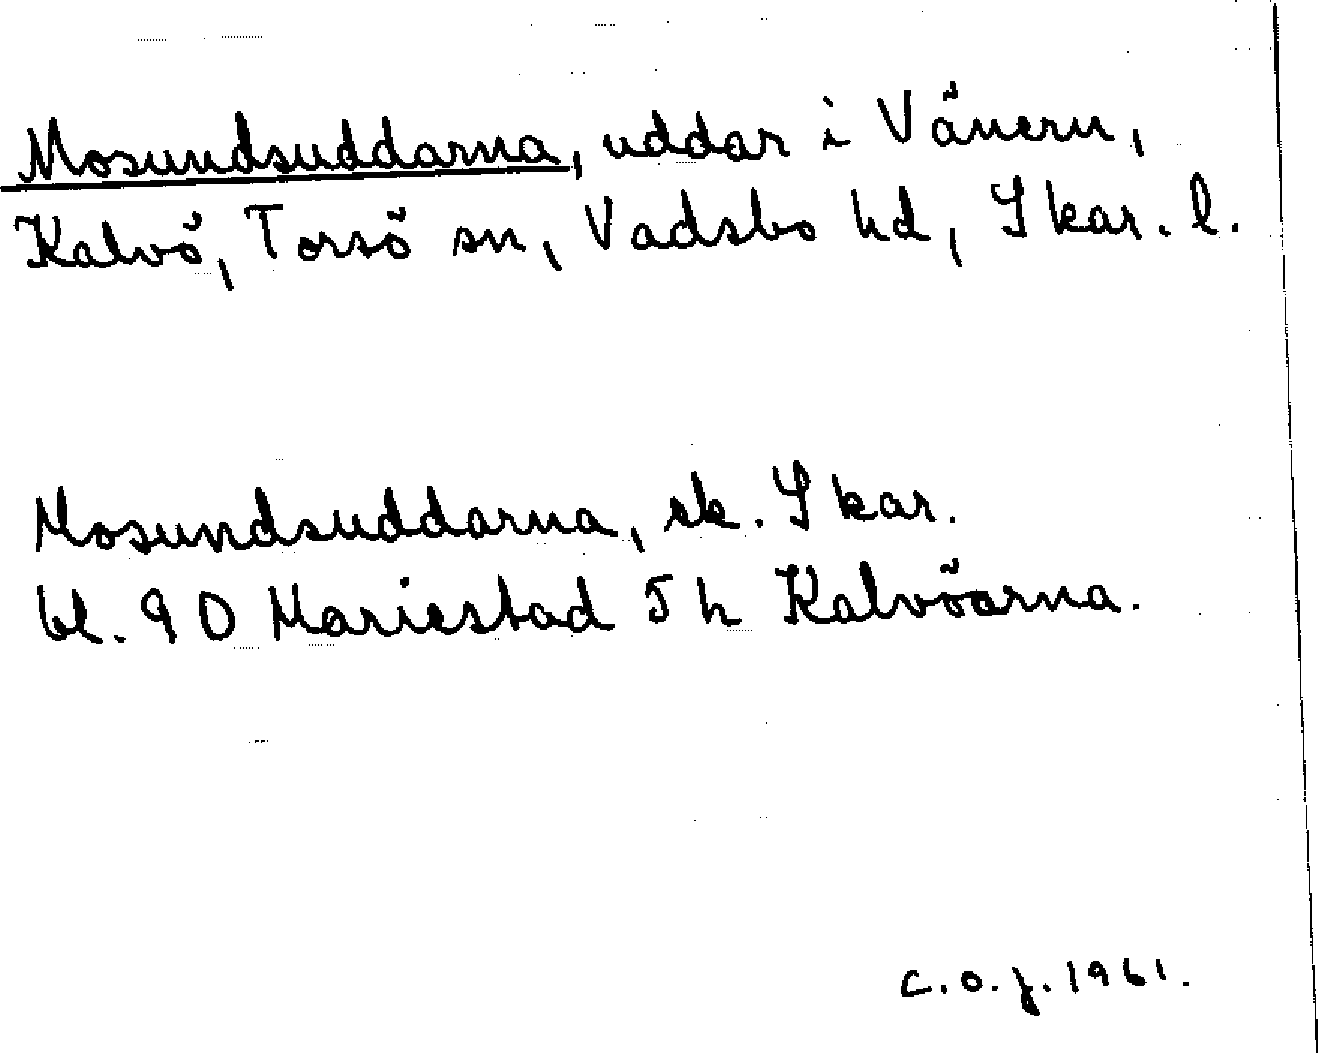 Mosundsuddarna, uddar i Vänern,
Kalvö, Torsö sn, Vadsbo hd, Skar. l.
Mosundsuddarna, sk. Skar.
bl. 9 D Mariestad 5 h Kalvöarna.
C.O.J. 1961.